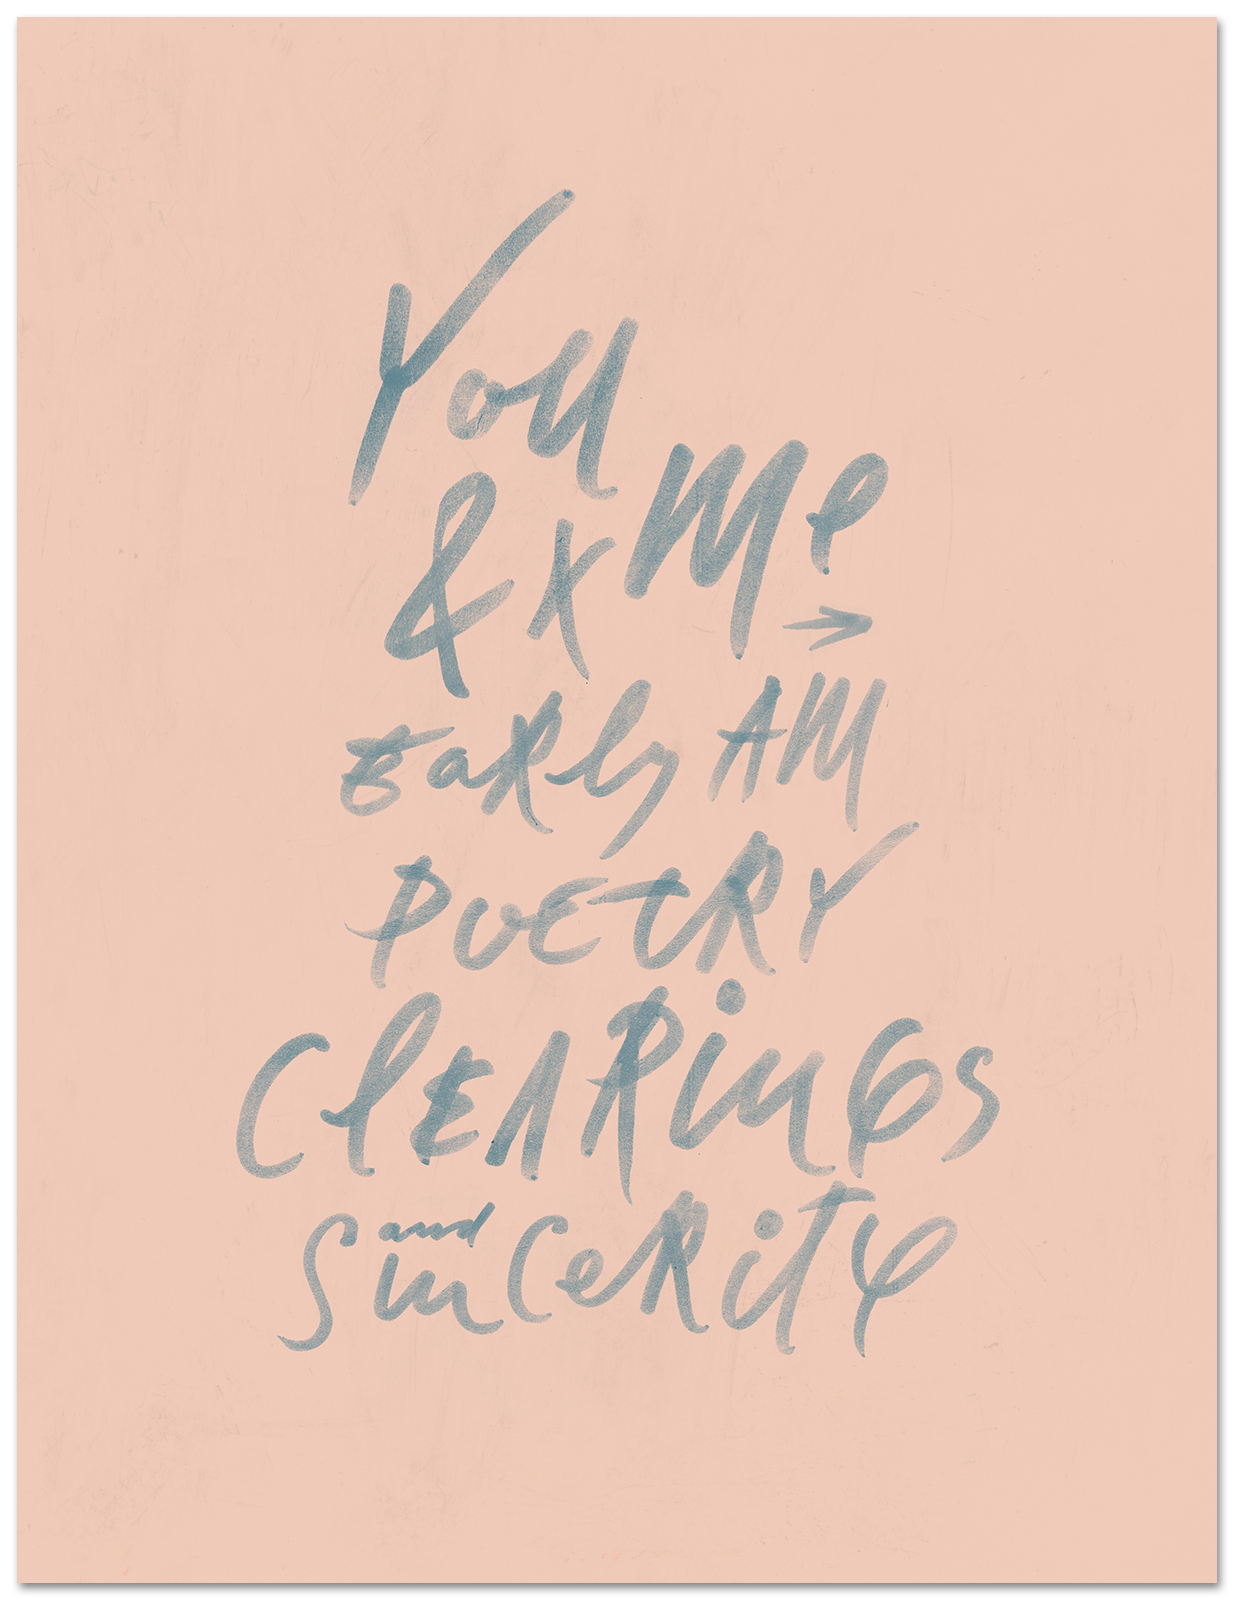 You
& x Me →
Early AM
POETRY
ClEARinGs
and
SinCeRity